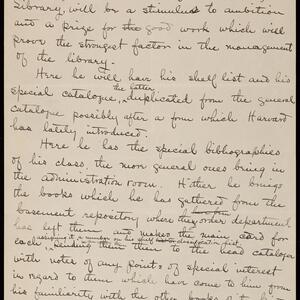 Library, will be a stimulus to ambition
and a prize for the good work which will
prove the strongest factor in the management
of the library.
Here he will have his shelf list and his
special catalogue, the latter duplicated from the general
catalogue possibly after a form which Harvard
has lately introduced.
Here he has the special bibliographies
of his class, the more general ones being in
the administration room. Hither he brings
the books which he has gathered from the
basement repository where the order department
has left them and makes the main card for
each, sending them to the head cataloger
with notes of any points of special interest
in regard to them which have come to him from
his familiarity with the other books